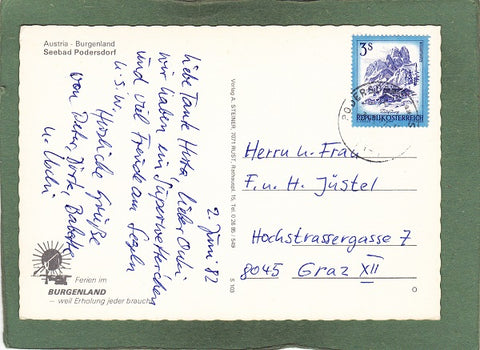 Austria - Burgenland
Seebad Podersdorf
2. Juni 82
Liebe Tante Herta, lieber Onki
wir haben ein Superwetterchen
und viel Freude am Segeln
u.s.w.
Herzliche Grüße
von Peter, Dörte, Babette
u. Uschi
Ferien im
BURGENLAND
– weil Erholung jeder braucht
Verlag A. STEINER, 7071 RUST, Rathauspl. 15, Tel. 0 26 85 / 549
S 103
3 S
REPUBLIK ÖSTERREICH
PODERSDORF AM
Herrn u. Frau
F. u. H. Jüstel
Hochstrassergasse 7
8045 Graz XII